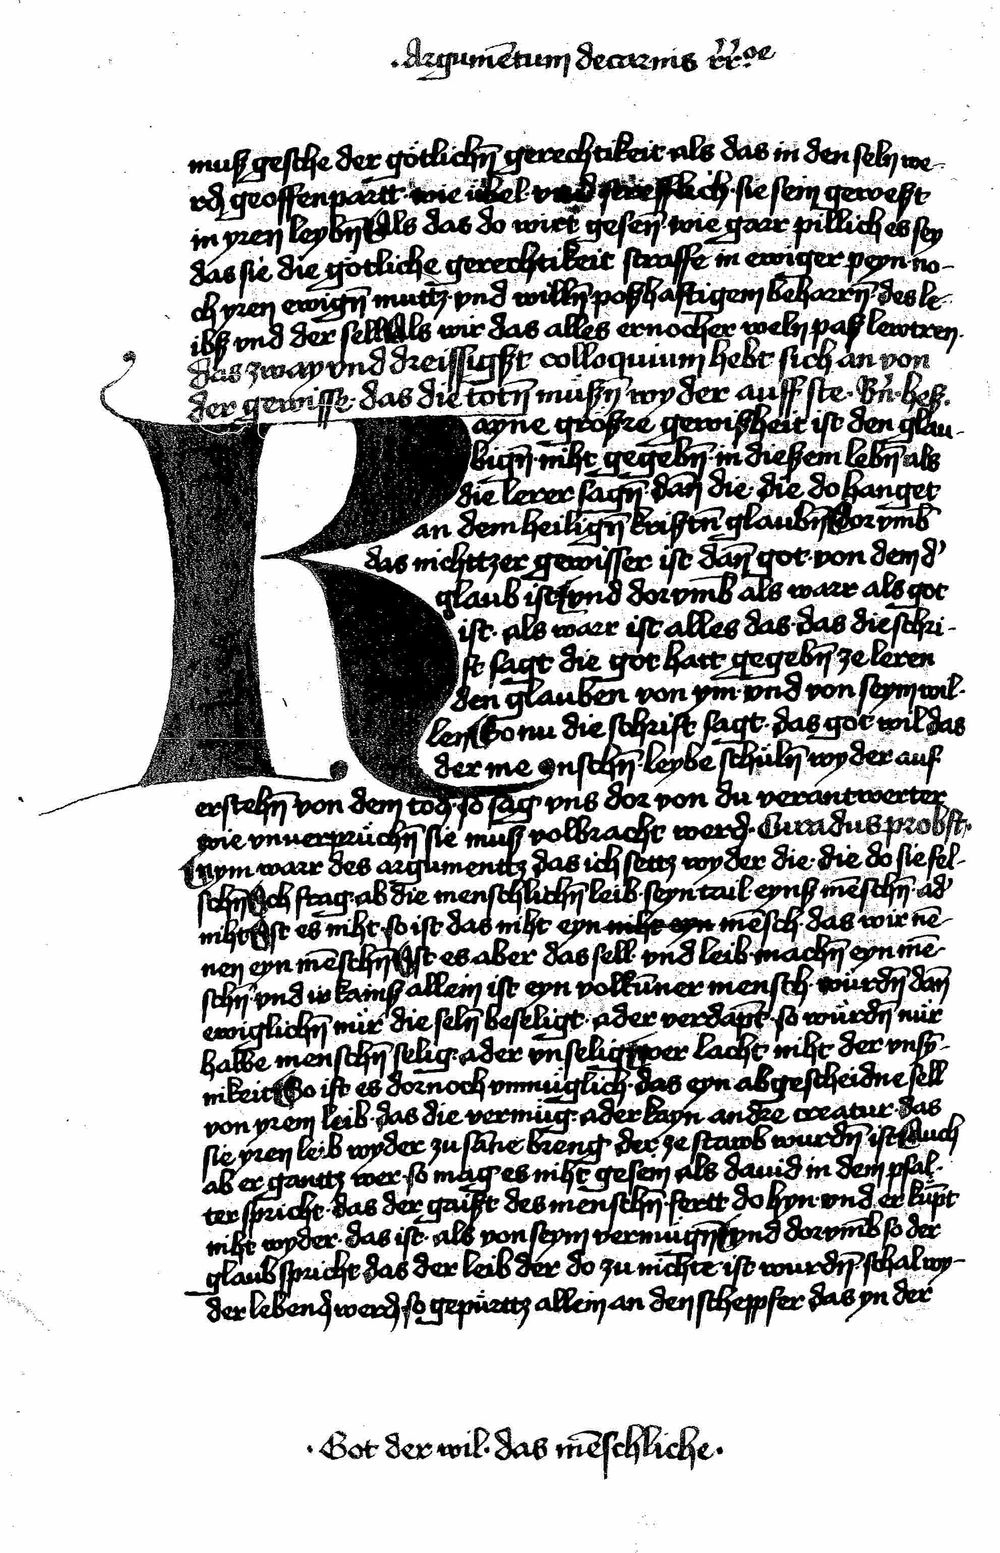 .Argumētum de carnis rr̃oe
muß gesche der götlichn̄ gerechtikeit als das in den seln we-
rdn geoffenpartt wie übel vnd strefflich sie sein geweßt
in yren leybn̄ Als das do wirt gesen̄ wie garr pillich es sey
das sie die götliche gerechtikeit straffe in ewiger peyn no-
ch yren ewign̄ muttz vnd willn̄ poßhaftigem beharrn̄ des le-
ibß vnd der sell Als wir das alles ernocher weln paß lewtren.
das zway vnd dreissigßt colloquium hebt sich an von
der gewisse das die totn̄ müßn̄ wyder auff ste.
Kayne größre gewißheit ist den glau-
bign̄ niht gegebn̄ in dießem lebn̄ als
die lerer sagn̄ dan̄ die die do hanget
an dem heilign̄ krißtn̄ glaubn̄ dorvmb
das nichttzer gewisser ist dan̄ got von dem d'
glaub ist vnd dorvmb als warr als got
ist. als warr ist alles das das die schri-
ft sagt die got hatt gegebn̄ ze leren
den glauben von ym vnd von seym wil-
len So nu die schrift sagt das got wil das
der menschn̄ leybe schüln̄ wyder auf
erstehn̄ von dem tod so sag vns dor von du verantwerter
wie vnuerprüchn̄ sie muß volbracht werd. Curadus probst.
Nym warr des argumenttz das ich settz wyder die die do sie fel-
schn̄ Ich frag ab die menschlichn̄ leib seyn tail eynß mēschn̄ ad'
niht Ist es niht so ist das niht eyn niht eyn mēsch das wir nē-
nen eyn mēschn̄ Ist es aber das sell vnd leib machn̄ eyn me-
schn̄ vnd ir kainß allein ist eyn volkūner mensch würdn̄ dan̄
ewiglichn̄ nür die seln beseligt ader verdāpt so würdn̄ nür
halbe menschn̄ selig ader vnselig wer lacht niht der vnsȳ-
nikeit So ist es dornoch vnmüglich das eyn abgescheidne sell
von yrem leib das die vermüg ader kayn andre creatur das
sie yren leib wyder zu sāne breng der ze stawb wurdn̄ ist Auch
ab er ganttz wer so mag es niht gesein als dauid in dem psal-
ter spricht das der gaißt des menschn̄ fertt do hyn vnd er kūpt
niht wyder das ist als von seym vermügn̄ vnd dorvmb so der
glaub spricht das der leib der do zu nichte ist wurdn̄ schal wy-
der lebend werdn so gepürttz allein an den schepfer das yn der
. Got der wil das mēschliche.